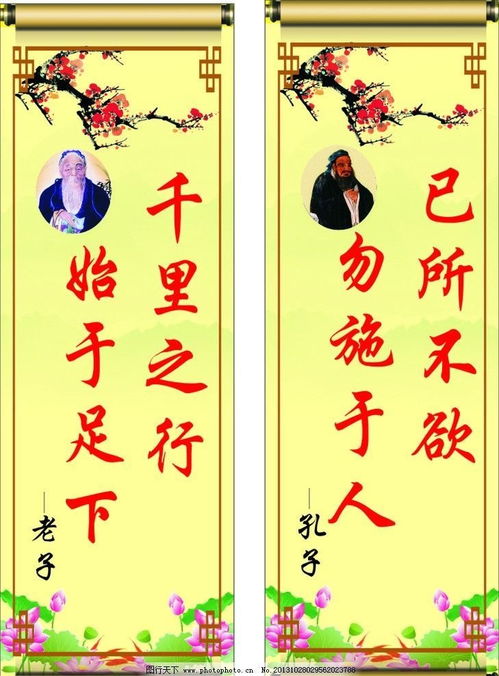 千里之行
始于足下
——老子
已所不欲
勿施于人
——孔子
图行天下 www.photophoto.cn No.20131028029562023788